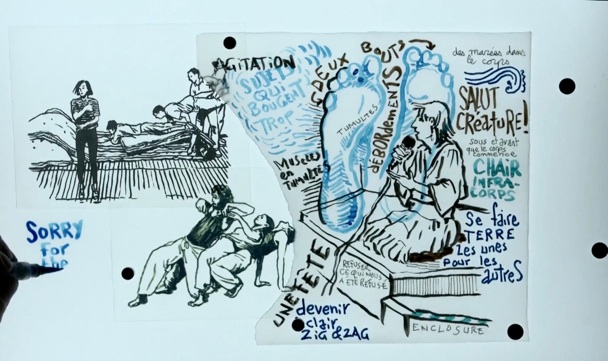 AGITATION
SUJETS
QUI
BOUGENT
TROP
Muscles
en
TUMULTES
DEUX BOUTS
TUMULTES
DÉBORDEMENTS
des marées dans
le corps
SALUT
CRÉATURE!
sous et avant
que le corps
commence
CHAIR
INFRA-
CORPS
Se faire
TERRE
les unes
pour les
autres
REFUSER
CE QUI NOUS
A ÉTÉ REFUSÉ
UNE FÊTE
devenir
éclair
ZIG & ZAG
ENCLOSURE
SORRY
for
the